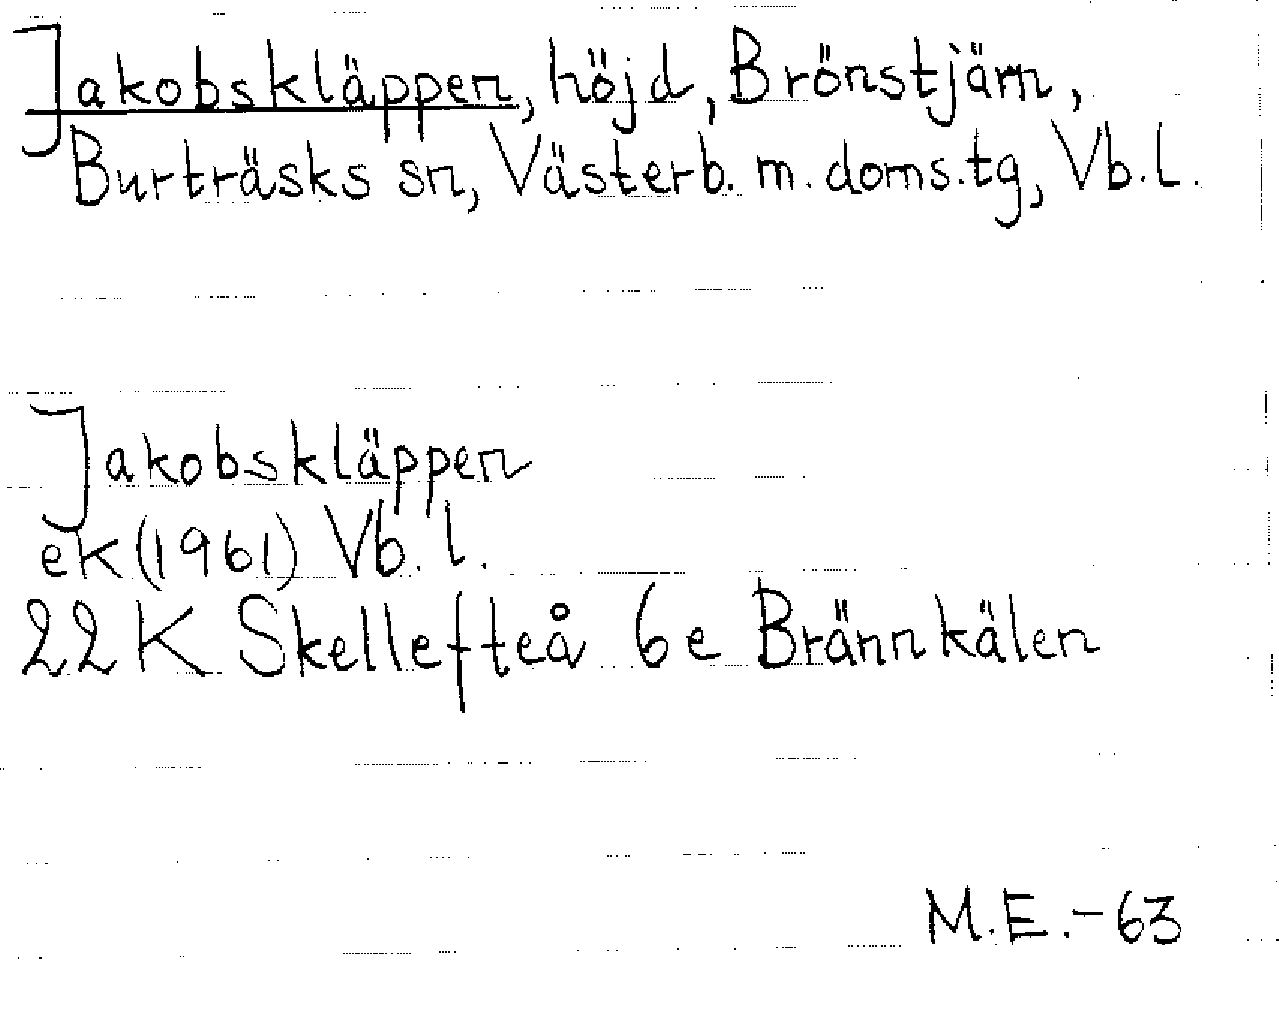 Jakobskläppen, höjd, Brönstjärn,
Burträsks sn, Västerb. m. doms.tg, Vb.l.
Jakobskläppen
ek (1961) Vb. l.
22K Skellefteå 6e Brännkälen
M.E.-63